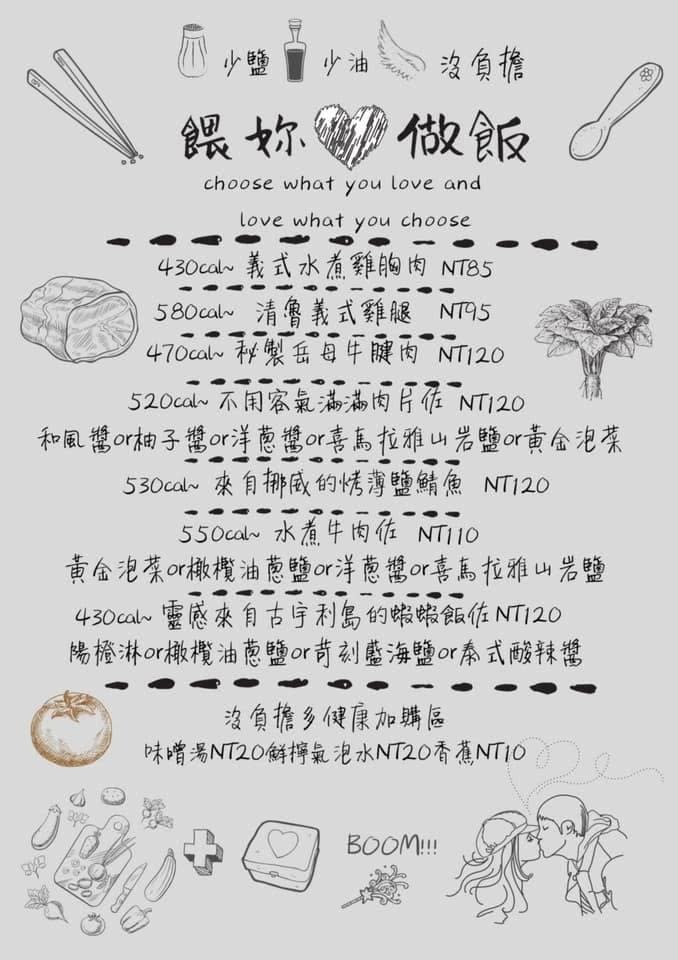 少鹽 少油 沒負擔
餵妳 做飯
choose what you love and
love what you choose
430cal~ 義式水煮雞胸肉 NT85
580cal~ 清魯義式雞腿 NT95
470cal~ 秘製岳母牛腱肉 NT120
520cal~ 不用客氣滿滿肉片佐 NT120
和風醬or柚子醬or洋蔥醬or喜馬拉雅山岩鹽or黃金泡菜
530cal~ 來自挪威的烤薄鹽鯖魚 NT120
550cal~ 水煮牛肉佐 NT110
黃金泡菜or橄欖油蔥鹽or洋蔥醬or喜馬拉雅山岩鹽
430cal~ 靈感來自古宇利島的蝦蝦飯佐NT120
陽橙淋or橄欖油蔥鹽or苛刻藍海鹽or泰式酸辣醬
沒負擔多健康加購區
味噌湯NT20鮮檸氣泡水NT20香蕉NT10
BOOM!!!